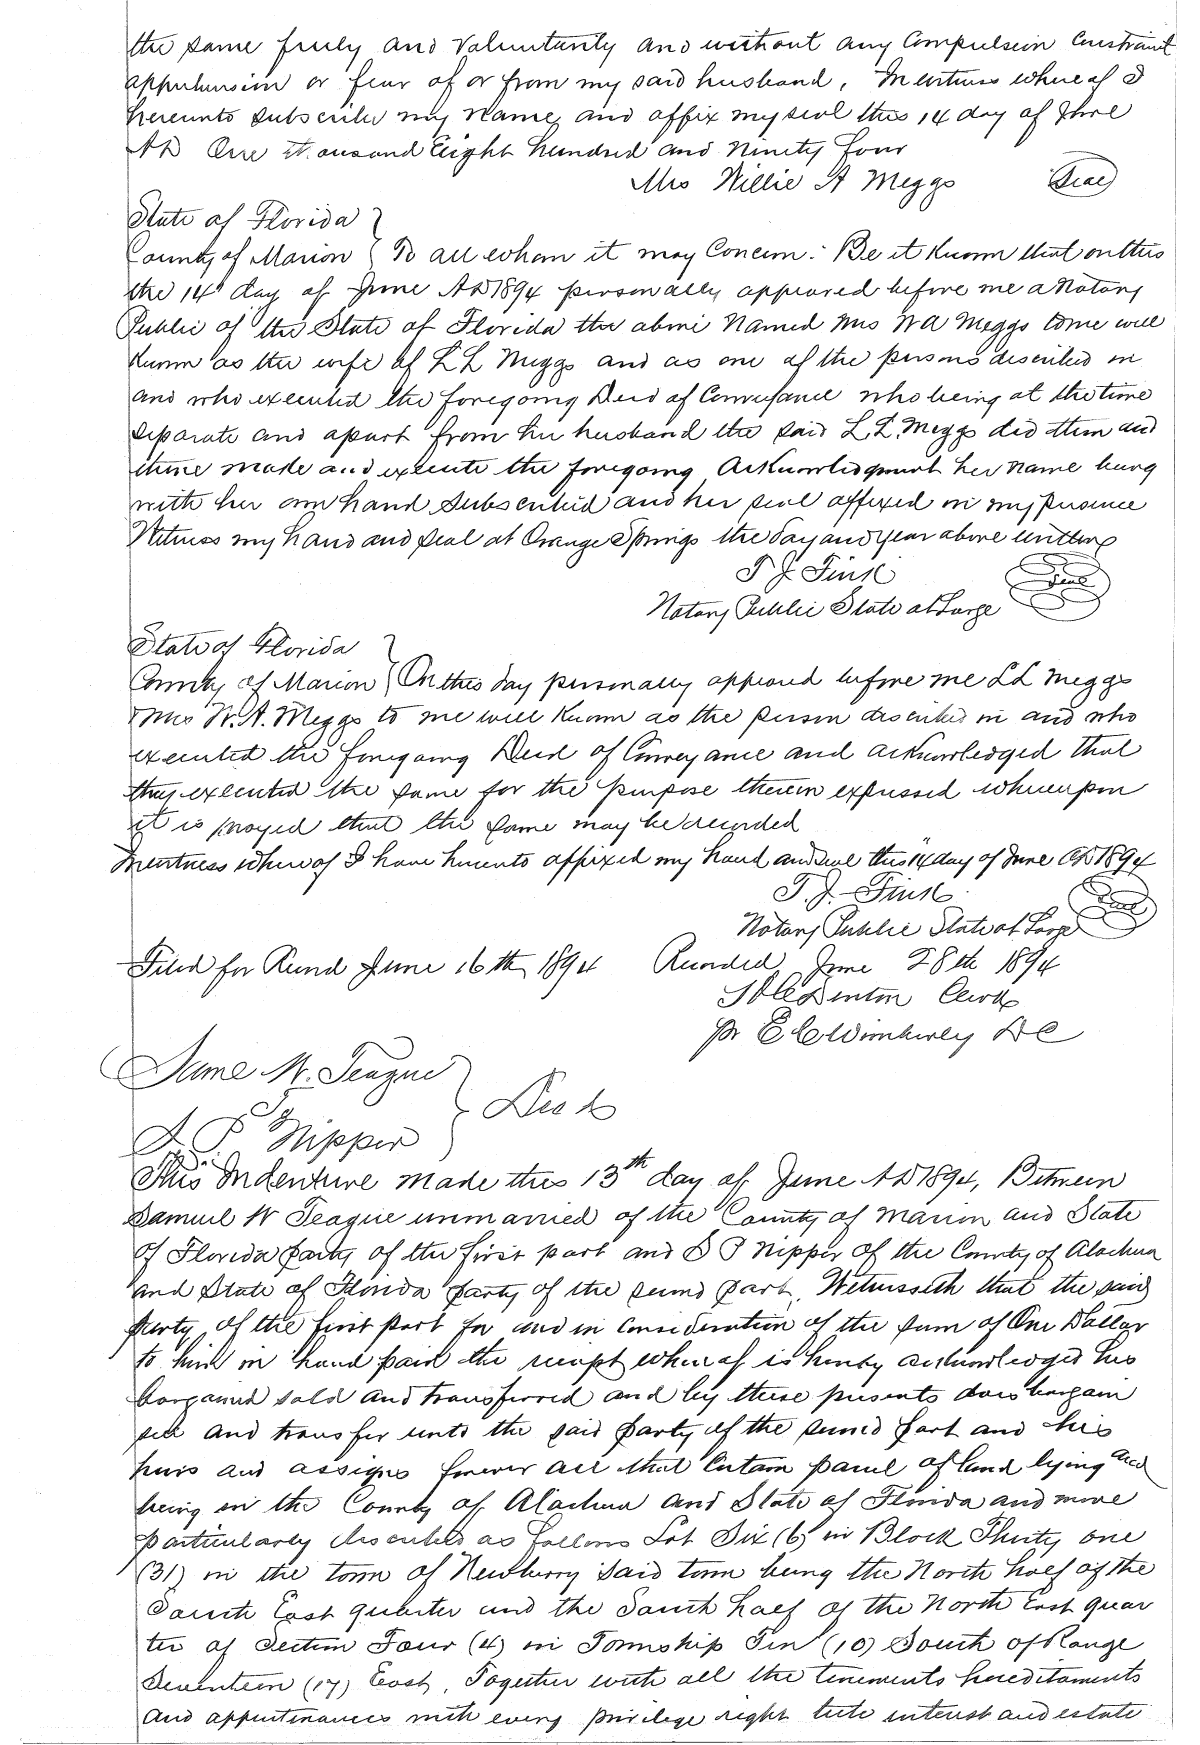 the same freely and voluntarily and without any Compulsion Constraint
apprehension or fear of or from my said husband, In witness whereof I
hereunto subscribe my name, and affix my seal this 14 day of June
AD One thousand Eight hundred and Ninety four
Mrs Willie A Meggs Seal
State of Florida
County of Marion } To all whom it may Concern: Be it Known that on this
the 14" day of June AD 1894 personally appeared before me a Notary
Public of the State of Florida the above Named Mrs W A Meggs to me well
Known as the wife of L L Meggs and as one of the persons described in
and who executed the foregoing Deed of Conveyance who being at the time
separate and apart from her husband the said L. L. Meggs did then and
there make and execute the foregoing Acknowledgment her name being
with her own hand Subscribed and her seal affixed in my presence
Witness my hand and seal at Orange Springs the day and year above written
T J Fink Seal
Notary Public State at Large
State of Florida
County of Marion } On this day personally appeared before me L L Meggs
Mrs W. A. Meggs to me well Known as the person described in and who
executed the foregoing Deed of Conveyance and acknowledged that
they executed the same for the purpose therein expressed whereupon
it is prayed that the same may be recorded
In witness whereof I have hereunto affixed my hand and seal this "14 day of June AD 1894
T. J. Fink Seal
Notary Public State at Large
Filed for Record June 16th 1894 Recorded June 28th 1894
Denton Clerk
pr E C Wimberley D C
Same W. Teague
To } Deed
S. P. Nipper
This Indenture made this 13th day of June AD 1894, Between
Samuel W Teague unmarried of the County of Marion and State
of Florida party of the first part and S P Nipper of the County of Alachua
and State of Florida party of the second part, Witnesseth that the said
party of the first part for and in consideration of the sum of One Dollar
to him in hand paid the receipt whereof is hereby acknowledged has
bargained sold and transferred and by these presents does bargain
sell and transfer unto the said party of the second part and his
heirs and assigns forever all that Certain parcel of land lying and
being in the County of Alachua and State of Florida and more
particularly described as follows Lot Six (6) in Block Thirty one
(31) in the town of Newberry said town being the North half of the
South East quarter and the South half of the North East quar
ter of Section Four (4) in Township Ten (10) South of Range
Seventeen (17) East, Together with all the tenements hereditaments
and appurtenances with every privilege right title interest and estate